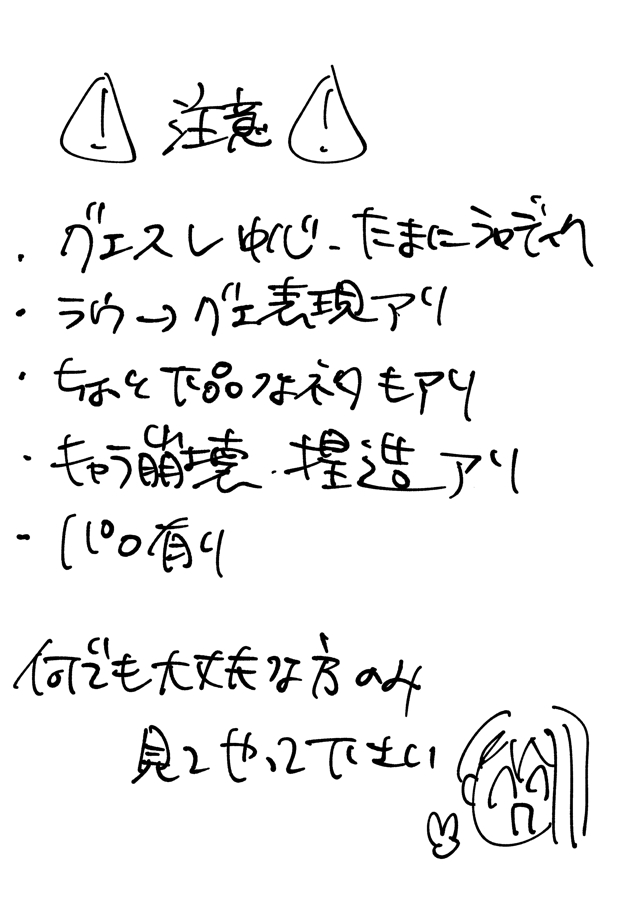 注意
・グエスレ中心、たまにラウディル
・ラウ→グエ表現アリ
・ちょっと下品なネタもアリ
・キャラ崩壊・捏造アリ
・パロ有り
何でも大丈夫な方のみ
見てやって下さい